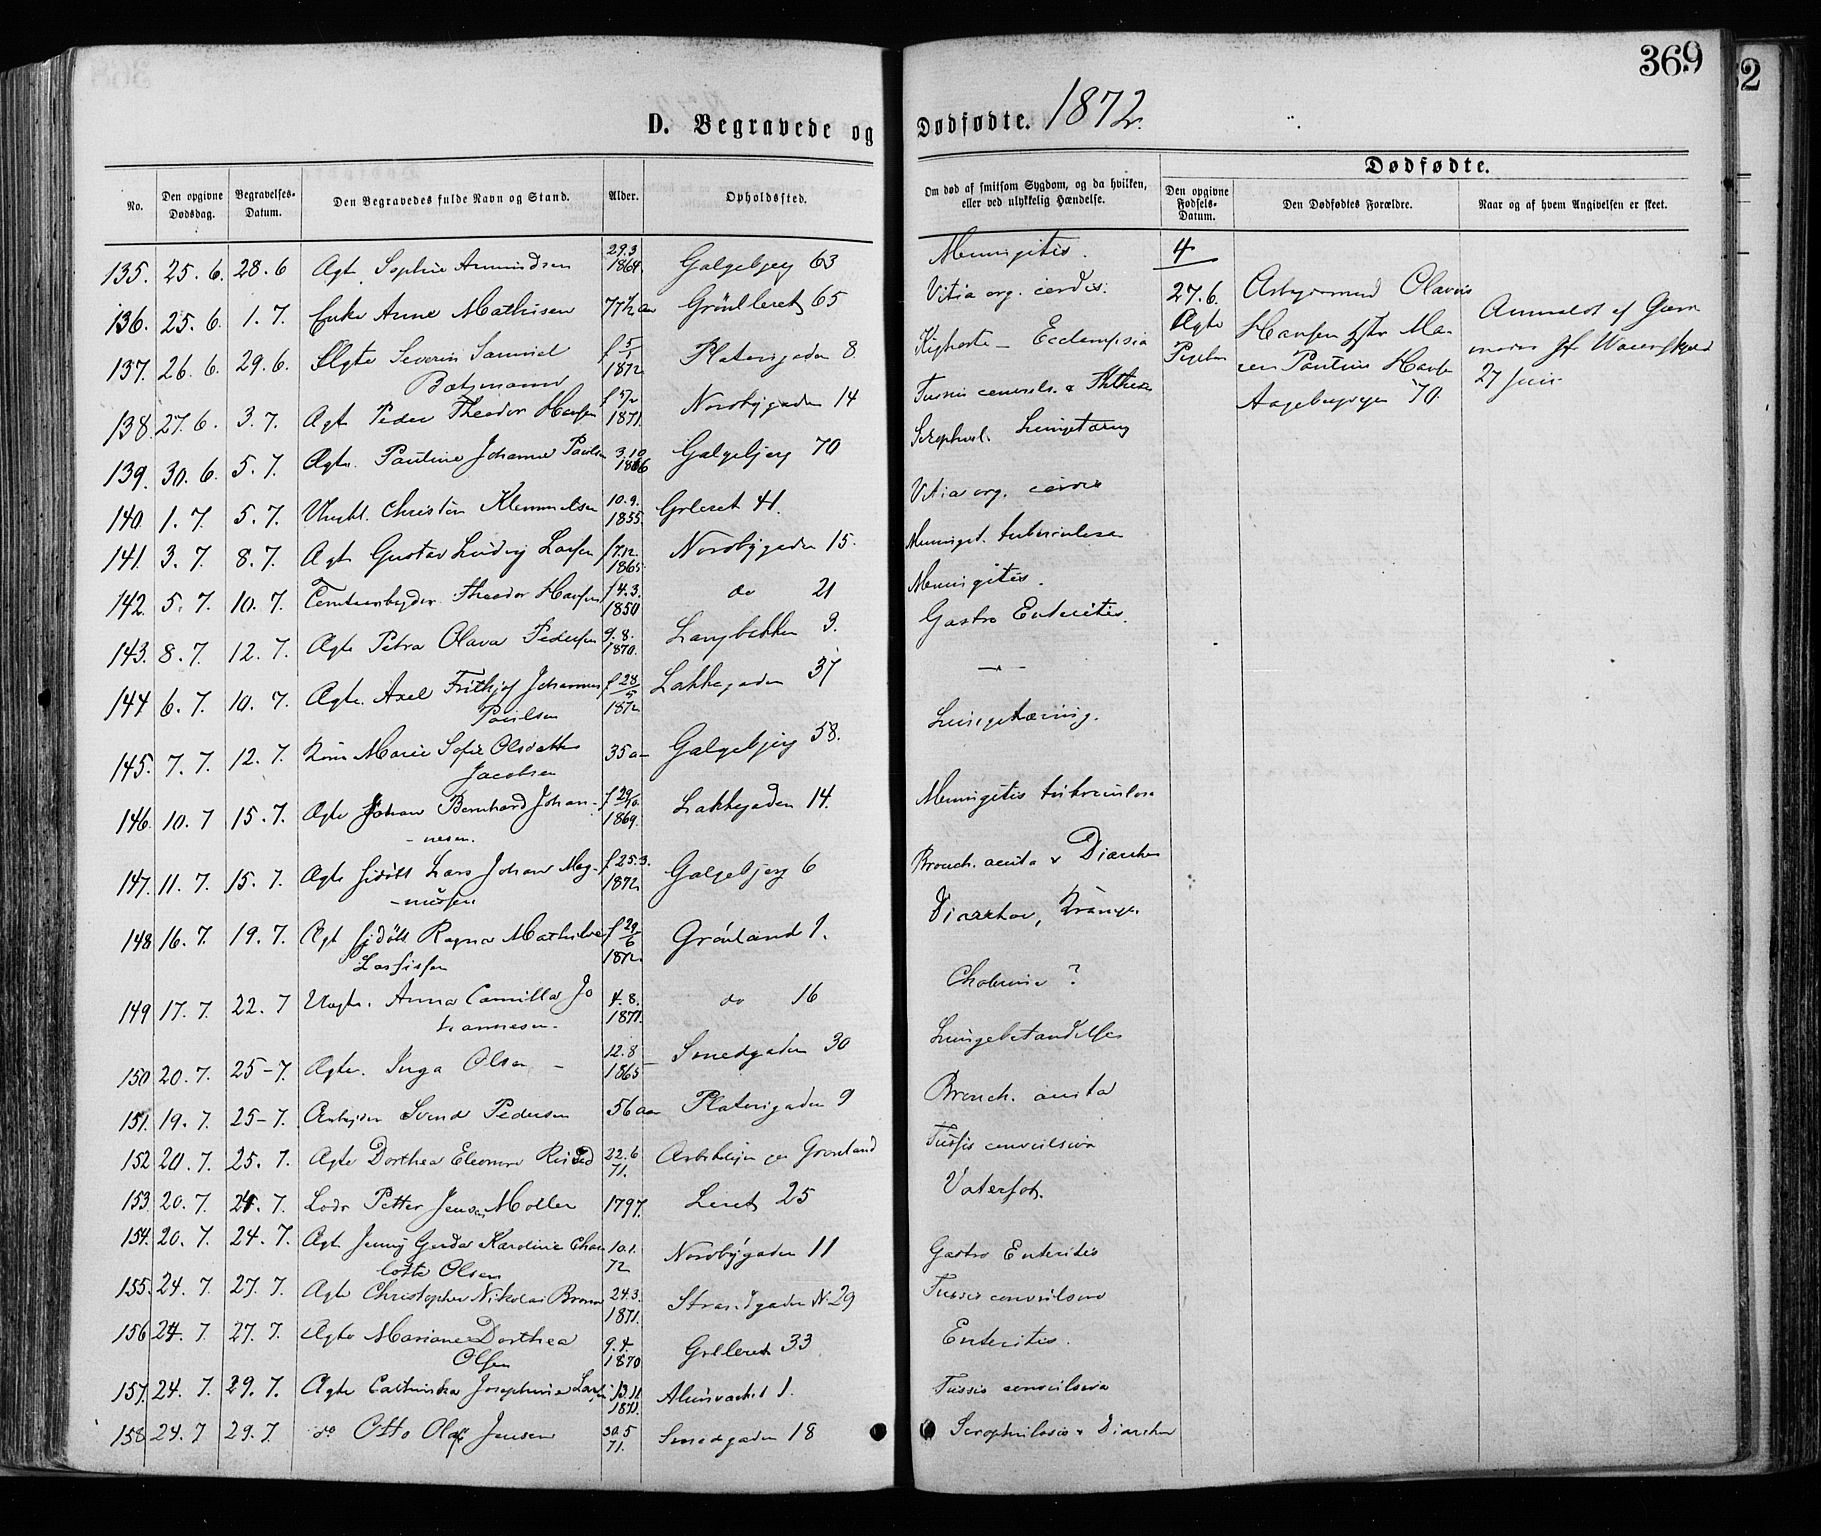 369
D. Begravede og Dødfødte. 1872.
Dødfødte.
No.
Den opgivne Dødsdag.
Begravelses-Datum.
Den Begravedes fulde Navn og Stand.
Alder.
Opholdssted.
Om død af smitsom Sygdom, og da hvilken, eller ved ulykkelig Hændelse.
Den opgivne Fødsels-Datum.
Den Dødfødtes Forældre.
Naar og af hvem Angivelsen er skeet.
135. 25. 6. 28. 6 Ægte Sophie Amundsen 29.3 1864 Galgebjerg 63 Meningitis.
136. 25. 6. 1. 7. Enke Anne Mathisen 77½ aar Grönlleret 65 Vitia org. cordis.
137. 26. 6. 29. 6. Ægte Severin Samuel f 5/1 1872 Platousgaden 8 Kighoste - Ecclampsia
138. 27. 6. 3. 7. Ægte Peder Theodor Hansen 1871. Nordbygaden 14 Tussis convuls. & Phthisis
139. 30. 6. 5. 7. Ægte. Pauline Johanne Paulsen 3.10 1866 Galgebjerg 70 Scrophul. Lungetæring
140. 1. 7. 5. 7. Christian Klemmetsen 10.9. 1855 Grleret 41. Vitia org. cordis
141. 3. 7. 8. 7. Ægte Gustav Ludvig Larsen f 7.12. 1865. Nordbygaden 15. Meningit. tuberculosa
142. 5. 7. 10. 7. Theodor Hansen f 4.3. 1850 do 21 Meningitis.
143. 8. 7. 12. 7. Ægte Petra Olava Pedersen 9.8. 1870. Langbakken 9. Gastro Enteritis.
144 6. 7. 10. 7. Ægte. Axel Frithjof Johannes f 28/5 1872 Lakkegaden 37 — " —
Paulsen
145. 7. 7. 12. 7. Kone Marie Sofie Olsdatter 35 aar Galgebjerg 58. Lungetæring.
Jacobsen
146. 10. 7 15. 7. Ægte Johan Bernhard Johan- 1869. Lakkegaden 14. Meningitis tuberculosa
-nesen.
147. 11. 7. 15. 7. Ægte Lars Johan Mag- f 25.3. 1872 Galgebjerg 6 Bronch. acuta & Diarrhoe
-nussen
148 16. 7. 19. 7. Ægt Ragna Mathilde f 29/6 1872. Grönland 9. Diarrhoe, Krampe
149 17. 7. 22. 7 Uægte. Anna Camilla Jo 4.8. 1871. do 16 Cholerine ?
hannesen.
150 20. 7. 25-7. Ægte. Inga Olsen - 12.8 1865 Smedgaden 30 Lungebetændelse
151. 19. 7. 25-7. Arbeider Svend Pedersen 56 aar Platousgaden 9 Bronch. acuta
152 20. 7. 25. 7. Ægte Dorthea Eleonore 22.6 71. Grønland Tussis convulsiva
153 20. 7. 24. 7. Lods Petter Jensen Moller 1797. Leret 25 Vatersot.
154. 20. 7. 24. 7. Ægte Jenny Gerda Karoline Char 10.1. 72 Nordbygaden 11 Gastro Enteritis
lotte Olsen
155. 24. 7. 27. 7. Ægte Christopher Nikolai 24.3. 1871. Strandgaden N 29 Tussis convulsiva
156 24. 7. 27. 7. Ægte Mariane Dorthea 9.4. 1870 Grlleret 33 Enteritis.
Olsen
157. 24. 7. 29. 7. Ægte Josephine Larsen 13.11 1871. Alunværket 1. Tussis convulsiva
158 24. 7 29. 7. do Otto Olaf Jensen 30.5 71. Smedgaden 18 Scrophulosis & Diarrhoe
4
27. 6.
Ægte
Arbeidsmand Olaves
Hansen Hstr Ma
ren Pauline Hansen
Aagebergveien 70.
Anmeldt af
27 Juni